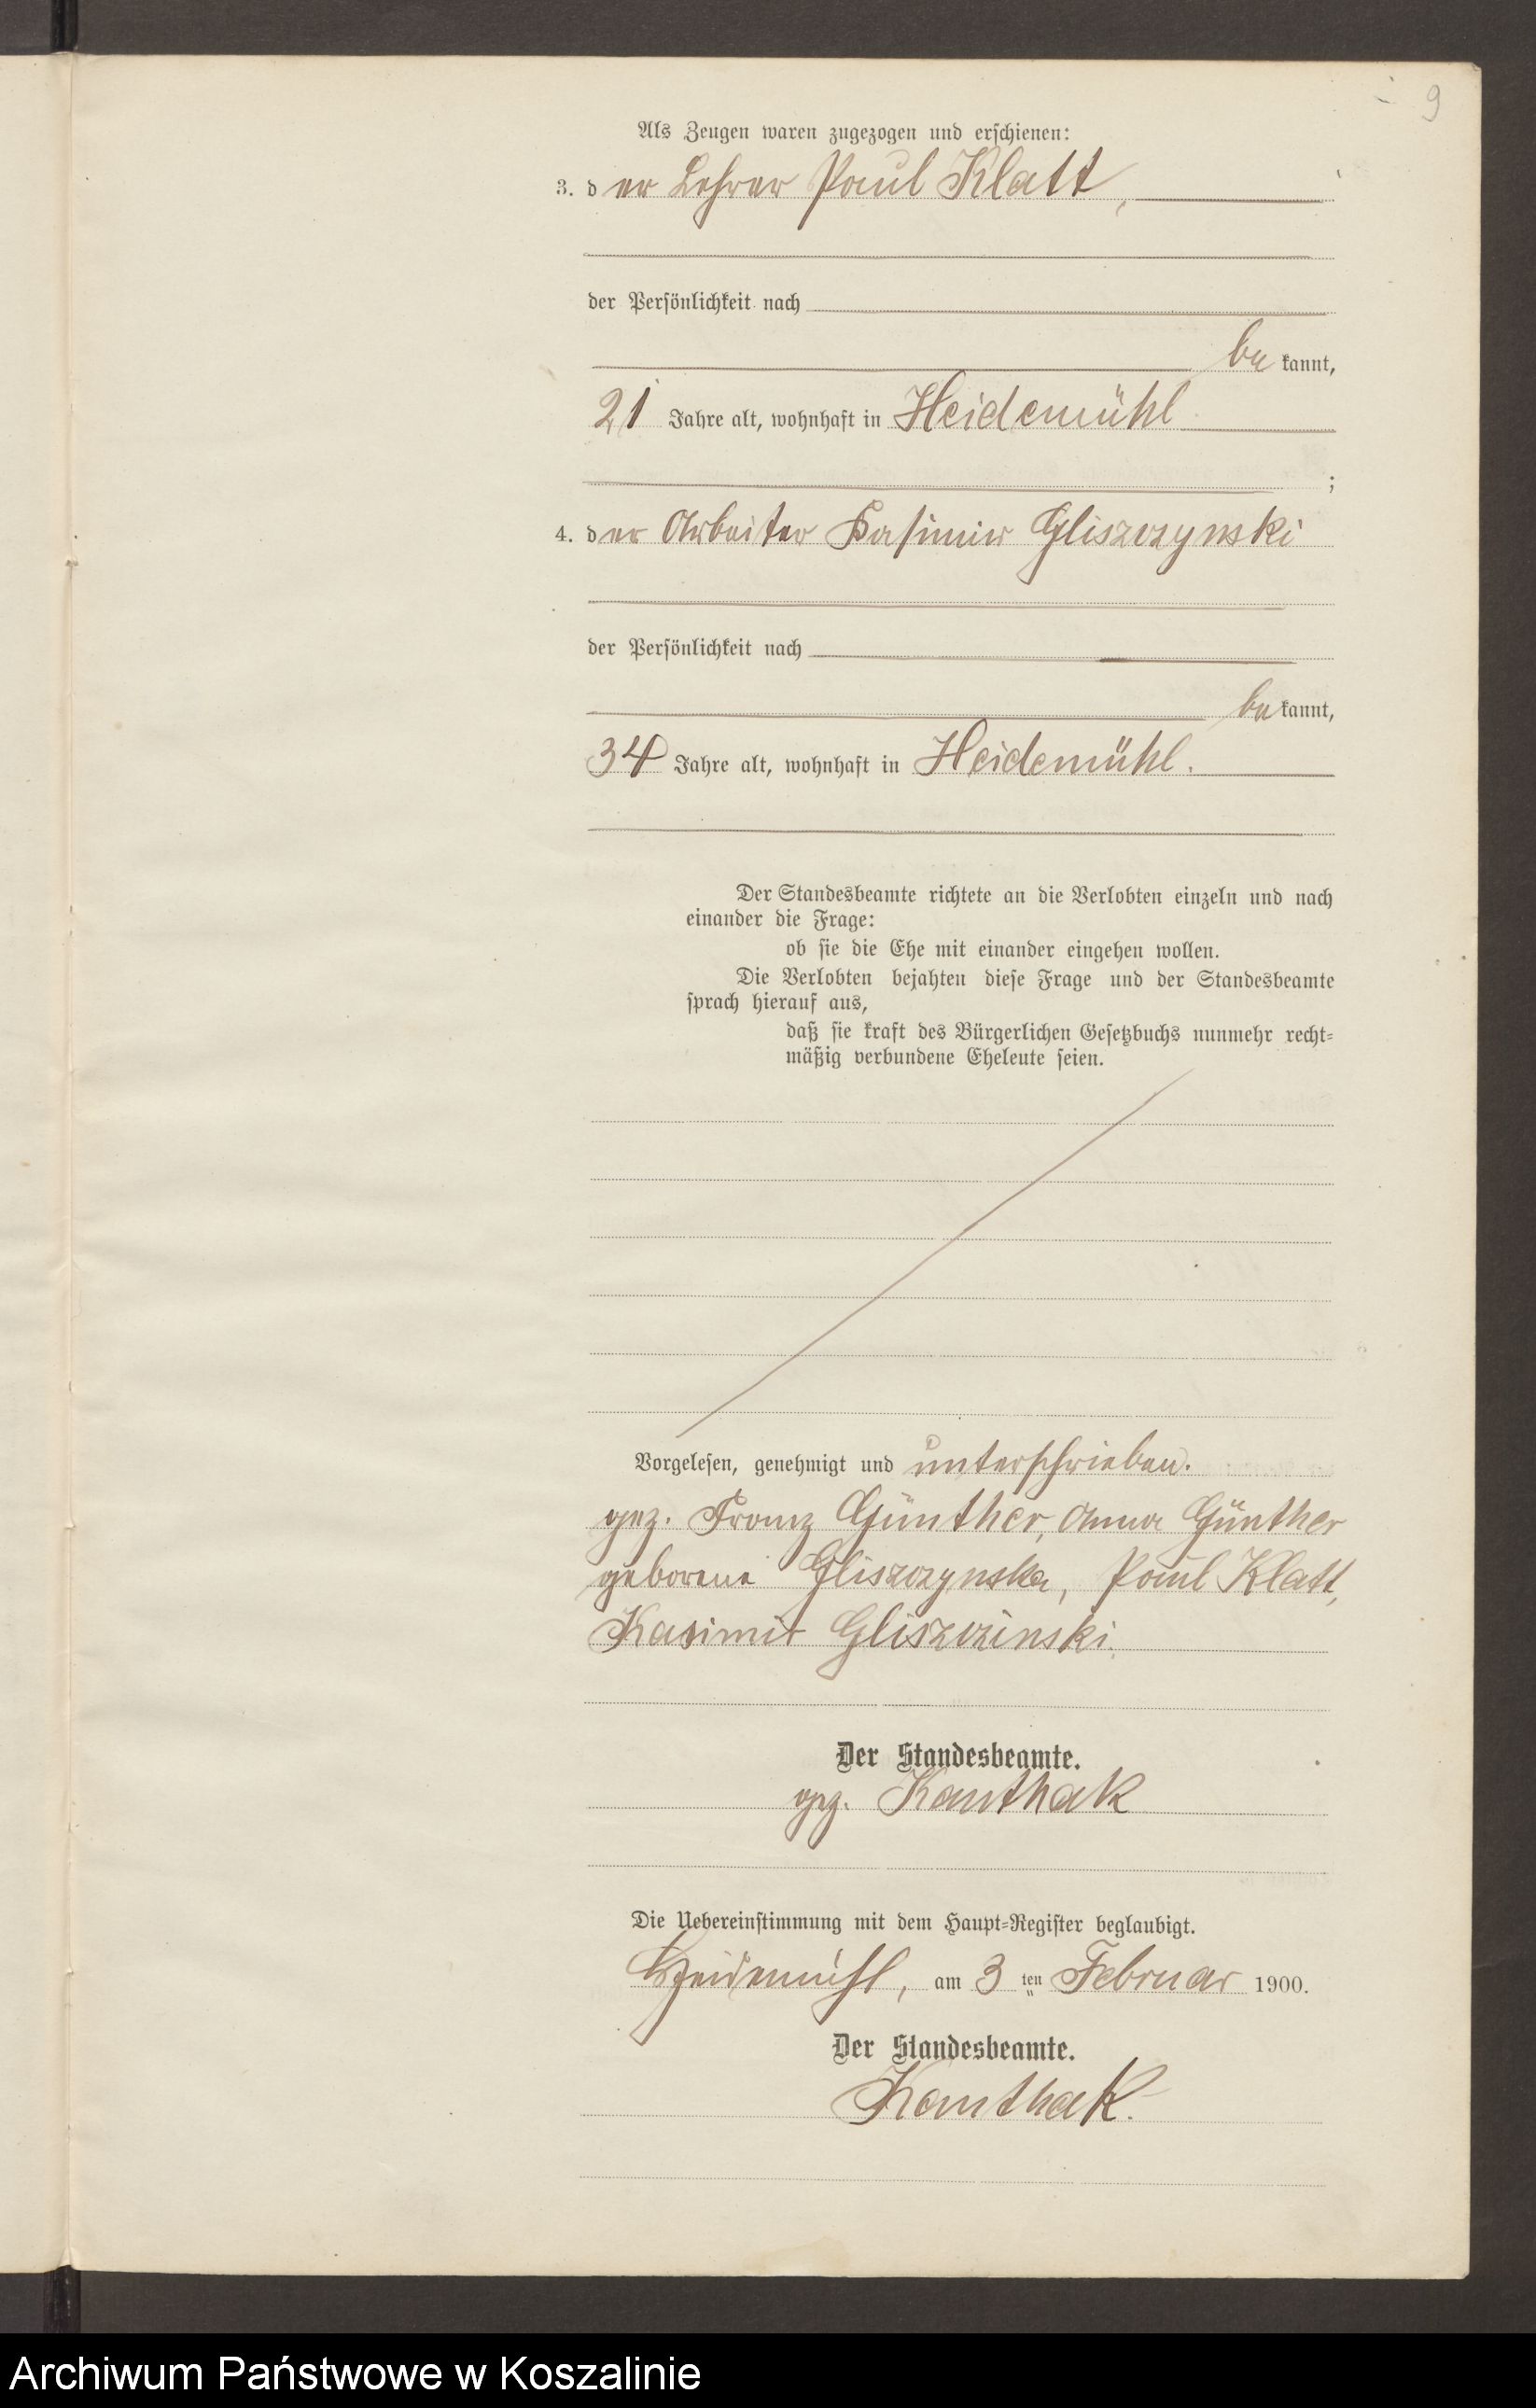 9
Als Zeugen waren zugezogen und erschienen:
3. der Lehrer Paul Klatt,
der Persönlichkeit nach
bekannt,
21 Jahre alt, wohnhaft in Heidemühl
;
4. der Arbeiter Kasimir Gliszczynski
der Persönlichkeit nach
bekannt,
34 Jahre alt, wohnhaft in Heidemühl.
Der Standesbeamte richtete an die Verlobten einzeln und nach
einander die Frage:
ob sie die Ehe mit einander eingehen wollen.
Die Verlobten bejahten diese Frage und der Standesbeamte
sprach hierauf aus,
daß sie kraft des Bürgerlichen Gesetzbuchs nunmehr recht-
mäßig verbundene Eheleute seien.
Vorgelesen, genehmigt und unterschrieben.
gez. Franz Günther, Anna Günther
geborene Gliszczynska, Paul Klatt,
Kasimir Gliszczinski.
Der Standesbeamte.
gez. Kanthak
Die Uebereinstimmung mit dem Haupt-Register beglaubigt.
Heidemühl, am 3 ten Februar 1900.
Der Standesbeamte.
Kanthak.
Archiwum Państwowe w Koszalinie